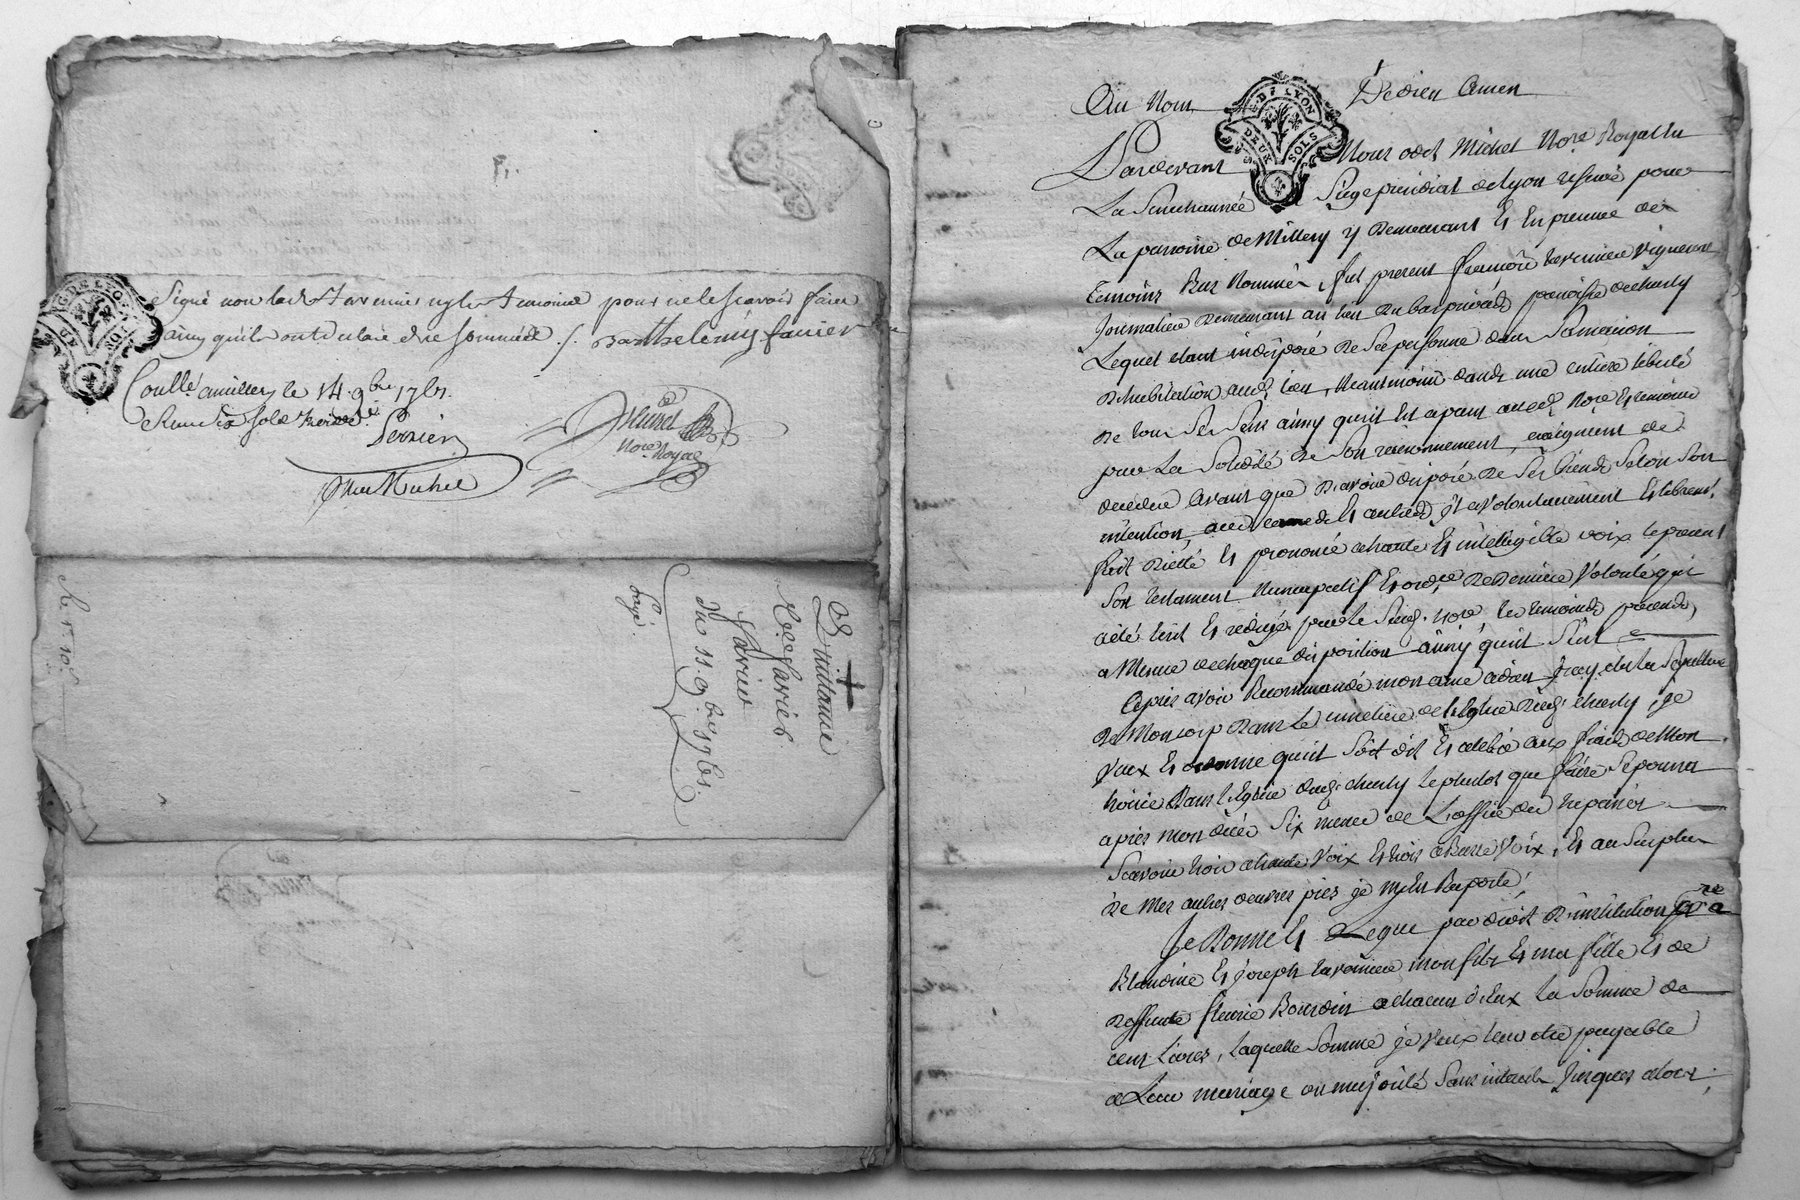 signé non led. Tavernier ny les temoins pour ne le scavoir faire
ainsy qu'ils ont declaré de ce sommés ./. Barthelemy favier
Coullé a millery le 14 9bre 1761
Recu dix sols
Perrier
Michel
Nore Royal
Michel
Quittance
favier
Du 11 9bre 1761
payé
GDE LYON
Au Nom De dieu Amen
D DE LYON
DEUX SOLS
Pardevant Nous odet Michel Nore Royal En
La Senechaussée & Siege presidial de Lyon reservé pour
La paroisse de Millery y Demeurant Et En presence des
temoins Bas Nommés, fut present françois taverniere vigneron
Journalier Demeurant au lieu du bas privas paroisse de charly
Lequel etant indisposé De Sa personne dans Sa maison
D'habitation aud. lieu, Neantmoins dans une entiere liberté
De tous Ses Sens ainsy qu'il Est aparu aud. Nore Et temoins
par La Solidité De Son raisonnement, craignant de
deceder avant que D'avoir disposé De Ses biens Selon Son
intention, a Et volontairement Et librement
fait Dicté Et prononcé a haute Et intelligible voix le present
Son testament Nuncupatif Et ordre De Derniere Volonté qui
a été Ecrit Et redigé par le Sousd. Nore, les temoins presents,
a Mesure de chaque disposition ainsy qu'il Suit
Apres avoir Recommandé mon ame a dieu, Elu La Sepulture
De Mon corps Dans le cimetiere de l'Eglise dud. charly, je
Veux Et ordonne qu'il Soit dit Et celebré aux frais de Mon
hoirie Dans l'Eglise dud. charly le plutot que faire Se pourra
apres mon décés Six messes de L'office des trepassés
Scavoir trois a haute Voix Et trois a Basse Voix, Et au Surplus
De Mes autres oeuvres pies je m'y En Raporte
Je Donne Et Legue par droit D'institution a
Blandine Et joseph taverniere mon fils Et ma fille Et de
Deffunte fleurie Bourdin a chacun d'Eux La Somme de
cent Livres, laquelle Somme je Veux leur etre payable
a Leur mariage ou majorité Sans interets jusques alors,